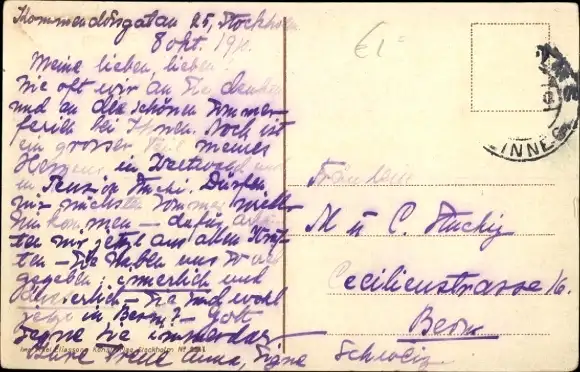 Kommendörsgatan 25, Stockholm
8 okt. 19
Meine lieben, lieben
Wie oft wir an Sie denken
und an die schönen Sommer-
ferien bei Ihnen. Noch ist
ein grosser Teil meines
Herzens in
in Pension Stucki. Dürfen
wir nächsten Sommer wieder
hinkommen – dafür arbei-
ten wir jetzt aus allen Kräf-
ten – Sie haben uns viel
gegeben; innerlich und
äusserlich – Sie sind wohl
jetzt in Bern? – Gott
segne Sie immerdar –
Ihre Anna, Signe
Axel Eliassons Stockholm
€1=
INNES
Fräulein
M u C. Stucky
Cecilienstrasse
Bern
Schweiz